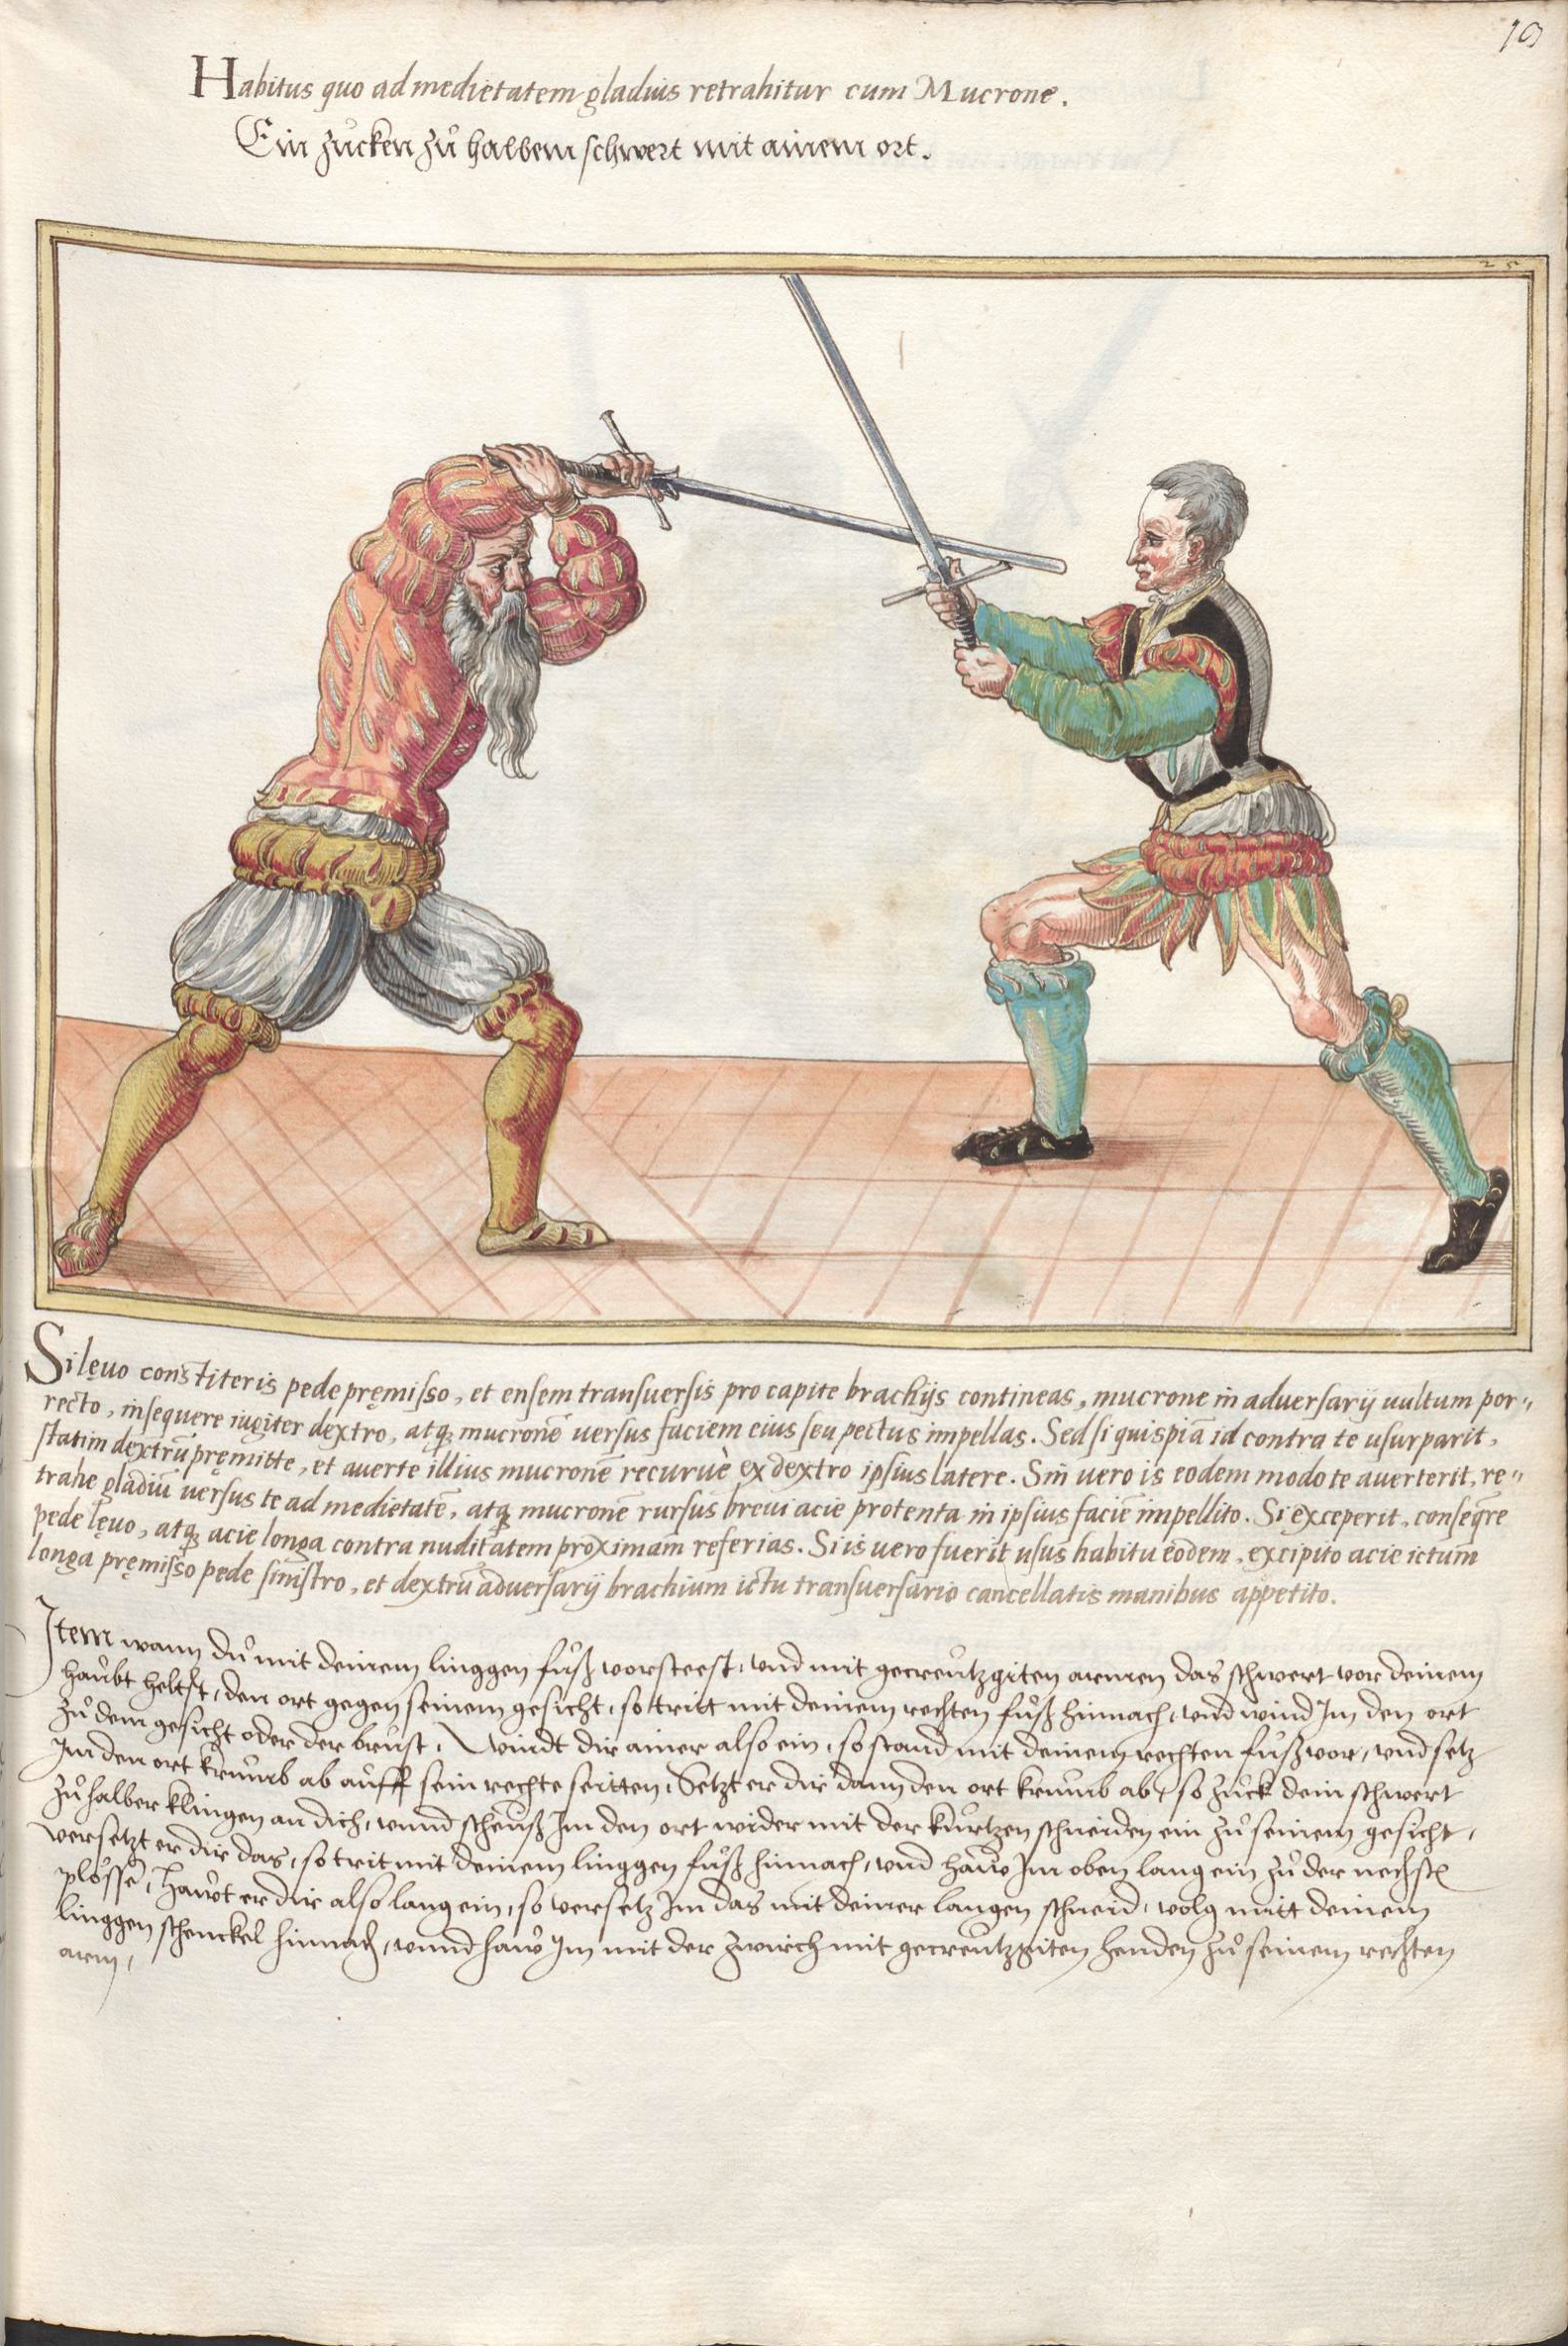 19
Habitus quo ad medietatem gladius retrahitur cum Mucrone.
Ein zucken zů halbem schwert mit ainem ort.
25
Si lęuo constiteris pede pręmisso, et ensem transuersis pro capite brachijs contineas, mucrone in adversarij uultum por„
recto, insequere iugiter dextro, atq; mucronē uersus faciem eius seu pectus impellas. Sed si quispiā id contra te usurparit,
statim dextrū pręmitte, et auerte illius mucronē recuruè ex dextro ipsius latere. Sin uero is eodem modo te auerterit, re„
trahe gladiū uersus te ad medietatē, atq; mucronē rursus breui acie protenta in ipsius faciē impellito. Si exceperit, conseqre
pede lęuo, atq; acie longa contra nuditatem proximam referias. Si is uero fuerit usus habitu eodem, excipito acie ictum
longa pręmisso pede sinistro, et dextrū adversarij brachium ictu transuersario cancellatis manibus appetito.
Item wann dů mit deinem linggen fůß vorsteest, vnd mit gecreůtzgiten armen das schwert vor deinem
haůbt heltst, den ort gegen seinem gesicht, so tritt mit deinem rechten fůß hinnach, vnd wind Im den ort
zů dem gesicht oder der brůst, Windt dir ainer also ein, so stand mit deinem rechten fůß vor, vnd setz
Im den ort krůmb ab aůff sein rechte seitten, Setzt er dir dann den ort krůmb ab, so zuck dein schwert
zů halber klingen an dich, vnnd scheůß Im den ort wider mit der kůrtzen schneiden ein zů seinem gesicht,
versetzt er dir das, so trit mit deinem linggen fůß hinnach, vnd haůw Im oben lang ein zů der nechsten
plösse, Hawt er dir also lang ein, so versetz Im das mit deiner langen schneid, volg mitt deinem
linggen schenckel hinnach, vnnd haw Im mit der zwirch mit gecreůtzgiten henden zů seinem rechten
arm,